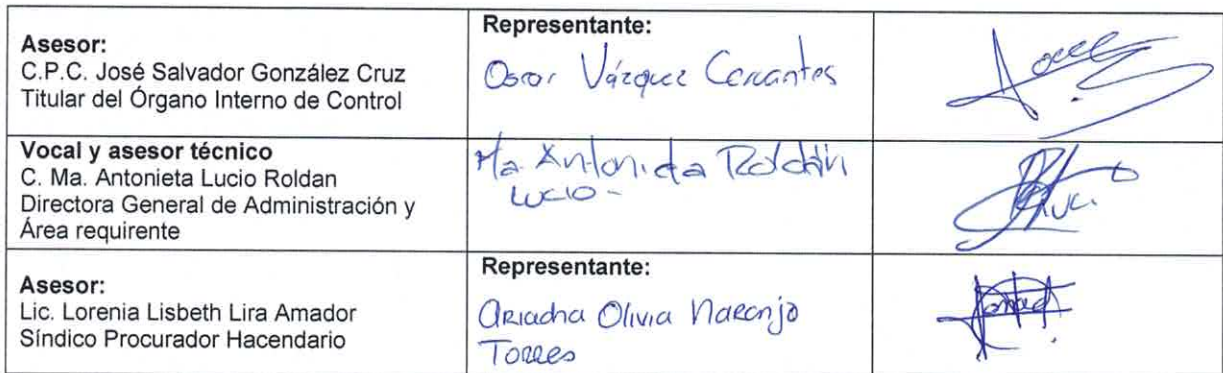 Asesor:
C.P.C. José Salvador González Cruz
Titular del Órgano Interno de Control
Representante:
Oscar Vázquez Cervantes
Vocal y asesor técnico
C. Ma. Antonieta Lucio Roldan
Directora General de Administración y
Área requirente
Ma. Antonieta Roldán
Lucio-
Asesor:
Lic. Lorenia Lisbeth Lira Amador
Síndico Procurador Hacendario
Representante:
Ariadna Olivia Naranjo
Torres